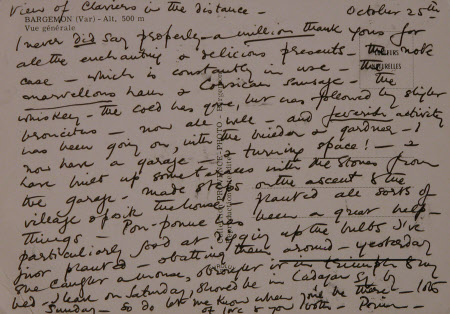 View of Claviers in the distance -
October 25th
BARGEMON (Var) - Alt, 500 m
Vue générale
I never did say properly - a million thank yous for
all the enchanting & delicious presents - the note
case - which is constantly in use - the
marvellous ham & Corsican sausage - the
whiskey - the cold has gone, but was followed by slight
broncitus - now all well - and feverish activity
has been going on, with the builder & gardner - I
now have a garage - & turning space! - &
have built up some terraces with the stones from
the garage - made steps on the ascent to the
village & outside the house - planted all sorts of
things - Pom-ponne has been a great help -
particularly good at digging up the bulbs I've
just planted - & batting them around - yesterday
she caught a mouse, & brought it in triumph to my
bed - leave on Saturday, should be in Cadogan Sq by
Sunday - so do let me know when you'll be there - lots
of love to you both -